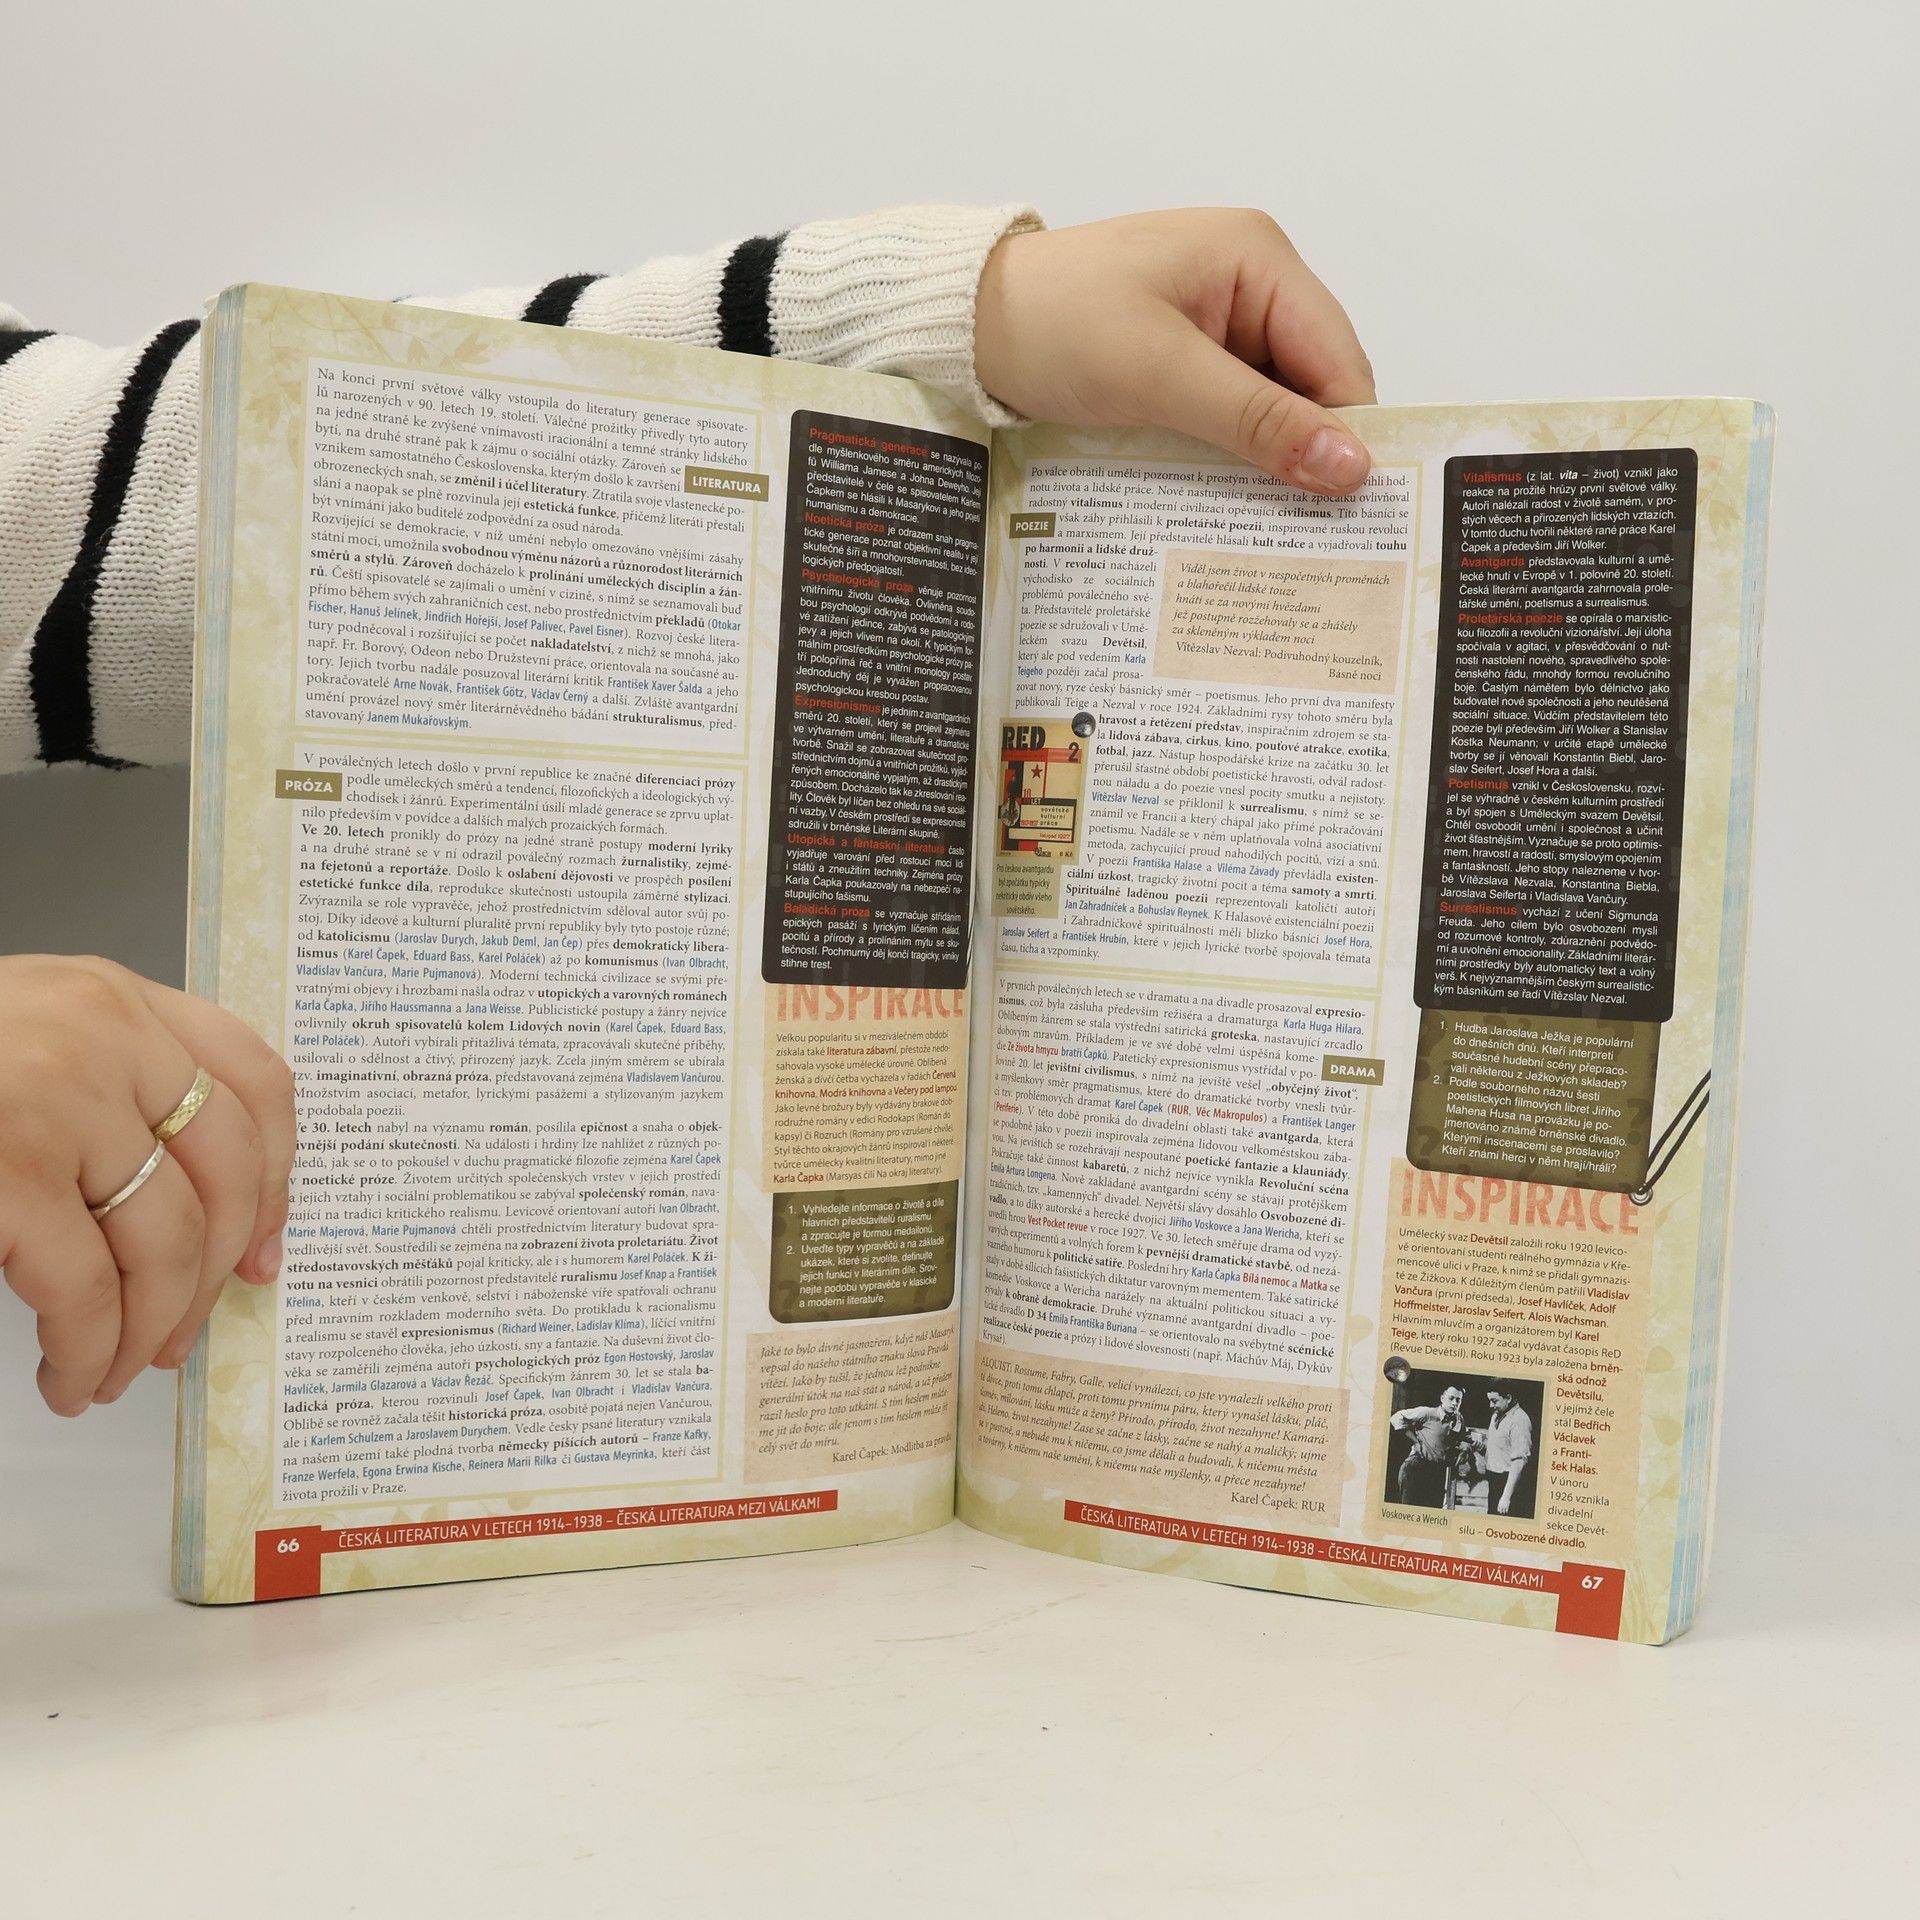 Na konci první světové války vstoupila do literatury generace spisovate-
lů narozených v 90. letech 19. století. Válečné prožitky přivedly tyto autory
na jedné straně ke zvýšené vnímavosti iracionální a temné stránky lidského
bytí, na druhé straně pak k zájmu o sociální otázky. Zároveň se
vznikem samostatného Československa, kterým došlo k završení
LITERATURA
obrozeneckých snah, se změnil i účel literatury. Ztratila svoje vlastenecké po-
slání a naopak se plně rozvinula její estetická funkce, přičemž literáti přestali
být vnímáni jako buditelé zodpovědní za osud národa.
Rozvíjející se demokracie, v níž umění nebylo omezováno vnějšími zásahy
státní moci, umožnila svobodnou výměnu názorů a různorodost literárních
směrů a stylů. Zároveň docházelo k prolínání uměleckých disciplín a žán-
rů. Čeští spisovatelé se zajímali o umění v cizině, s nímž se seznamovali buď
přímo během svých zahraničních cest, nebo prostřednictvím překladů (Otokar
Fischer, Hanuš Jelínek, Jindřich Hořejší, Josef Palivec, Pavel Eisner). Rozvoj české litera-
tury podněcoval i rozšiřující se počet nakladatelství, z nichž se mnohá, jako
např. Fr. Borový, Odeon nebo Družstevní práce, orientovala na současné au-
tory. Jejich tvorbu nadále posuzoval literární kritik František Xaver Šalda a jeho
pokračovatelé Arne Novák, František Götz, Václav Černý a další. Zvláště avantgardní
umění provázel nový směr literárněvědného bádání strukturalismus, před-
stavovaný Janem Mukařovským.
V poválečných letech došlo v první republice ke značné diferenciaci prózy
PRÓZA
podle uměleckých směrů a tendencí, filozofických a ideologických vý-
chodisek i žánrů. Experimentální úsilí mladé generace se zprvu uplat-
nilo především v povídce a dalších malých prozaických formách.
Ve 20. letech pronikly do prózy na jedné straně postupy moderní lyriky
a na druhé straně se v ní odrazil poválečný rozmach žurnalistiky, zejmé-
na fejetonů a reportáže. Došlo k oslabení dějovosti ve prospěch posílení
estetické funkce díla, reprodukce skutečnosti ustoupila záměrné stylizaci.
Zvýraznila se role vypravěče, jehož prostřednictvím sděloval autor svůj po-
stoj. Díky ideové a kulturní pluralitě první republiky byly tyto postoje různé;
od katolicismu (Jaroslav Durych, Jakub Deml, Jan Čep) přes demokratický libera-
lismus (Karel Čapek, Eduard Bass, Karel Poláček) až po komunismus (Ivan Olbracht,
Vladislav Vančura, Marie Pujmanová). Moderní technická civilizace se svými pře-
vratnými objevy i hrozbami našla odraz v utopických a varovných románech
Karla Čapka, Jiřího Haussmanna a Jana Weisse. Publicistické postupy a žánry nejvíce
ovlivnily okruh spisovatelů kolem Lidových novin (Karel Čapek, Eduard Bass,
Karel Poláček). Autoři vybírali přitažlivá témata, zpracovávali skutečné příběhy,
usilovali o sdělnost a čtivý, přirozený jazyk. Zcela jiným směrem se ubírala
tzv. imaginativní, obrazná próza, představovaná zejména Vladislavem Vančurou.
Množstvím asociací, metafor, lyrickými pasážemi a stylizovaným jazykem
se podobala poezii.
Ve 30. letech nabyl na významu román, posílila epičnost a snaha o objek-
tivnější podání skutečnosti. Na události i hrdiny lze nahlížet z různých po-
hledů, jak se o to pokoušel v duchu pragmatické filozofie zejména Karel Čapek
v noetické próze. Životem určitých společenských vrstev v jejich prostředí
a jejich vztahy i sociální problematikou se zabýval společenský román, nava-
zující na tradici kritického realismu. Levicově orientovaní autoři Ivan Olbracht,
Marie Majerová, Marie Pujmanová chtěli prostřednictvím literatury budovat spra-
vedlivější svět. Soustředili se zejména na zobrazení života proletariátu. Život
středostavovských měšťáků pojal kriticky, ale i s humorem Karel Poláček. K ži-
votu na vesnici obrátili pozornost představitelé ruralismu Josef Knap a František
Křelina, kteří v českém venkově, selství i náboženské víře spatřovali ochranu
před mravním rozkladem moderního světa. Do protikladu k racionalismu
a realismu se stavěl expresionismus (Richard Weiner, Ladislav Klíma), líčící vnitřní
stavy rozpolceného člověka, jeho úzkosti, sny a fantazie. Na duševní život člo-
věka se zaměřili zejména autoři psychologických próz Egon Hostovský, Jaroslav
Havlíček, Jarmila Glazarová a Václav Řezáč. Specifickým žánrem 30. let se stala ba-
ladická próza, kterou rozvinuli Josef Čapek, Ivan Olbracht i Vladislav Vančura.
Oblibě se rovněž začala těšit historická próza, osobitě pojatá nejen Vančurou,
ale i Karlem Schulzem a Jaroslavem Durychem. Vedle česky psané literatury vznikala
na našem území také plodná tvorba německy píšících autorů – Franze Kafky,
Franze Werfela, Egona Erwina Kische, Reinera Marii Rilka či Gustava Meyrinka, kteří část
života prožili v Praze.
Pragmatická generace se nazývala po-
dle myšlenkového směru amerických filozo-
fů Williama Jamese a Johna Deweyho. Její
představitelé v čele se spisovatelem Karlem
Čapkem se hlásili k Masarykovi a jeho pojetí
humanismu a demokracie.
Noetická próza je odrazem snah pragma-
tické generace poznat objektivní realitu v její
skutečné šíři a mnohovrstevnatosti, bez ideo-
logických předpojatostí.
Psychologická próza věnuje pozornost
vnitřnímu životu člověka. Ovlivněna soudo-
bou psychologií odkrývá podvědomí a rodo-
vé zatížení jedince, zabývá se patologickými
jevy a jejich vlivem na okolí. K typickým for-
málním prostředkům psychologické prózy pa-
tří polopřímá řeč a vnitřní monology postav.
Jednoduchý děj je vyvážen propracovanou
psychologickou kresbou postav.
Expresionismus je jedním z avantgardních
směrů 20. století, který se projevil zejména
ve výtvarném umění, literatuře a dramatické
tvorbě. Snažil se zobrazovat skutečnost pro-
střednictvím dojmů a vnitřních prožitků, vyjád-
řených emocionálně vypjatým, až drastickým
způsobem. Docházelo tak ke zkreslování rea-
lity. Člověk byl líčen bez ohledu na své sociál-
ní vazby. V českém prostředí se expresionisté
sdružili v brněnské Literární skupině.
Utopická a fantaskní literatura často
vyjadřuje varování před rostoucí mocí lidí
i států a zneužitím techniky. Zejména prózy
Karla Čapka poukazovaly na nebezpečí na-
stupujícího fašismu.
Baladická próza se vyznačuje střídáním
epických pasáží s lyrickým líčením nálad,
pocitů a přírody a prolínáním mýtu se sku-
tečností. Pochmurný děj končí tragicky, viníky
stihne trest.
INSPIRACE
Velkou popularitu si v meziválečném období
získala také literatura zábavní, přestože nedo-
sahovala vysoké umělecké úrovně. Oblíbená
ženská a dívčí četba vycházela v řadách Červená
knihovna, Modrá knihovna a Večery pod lampou
Jako levné brožury byly vydávány brakové dob-
rodružné romány v edici Rodokaps (Román do
kapsy) či Rozruch (Romány pro vzrušené chvíle).
Styl těchto okrajových žánrů inspiroval i některé
tvůrce umělecky kvalitní literatury, mimo jiné
Karla Čapka (Marsyas čili Na okraj literatury).
1. Vyhledejte informace o životě a díle
hlavních představitelů ruralismu
a zpracujte je formou medailonů.
2. Uveďte typy vypravěčů a na základě
ukázek, které si zvolíte, definujte
jejich funkci v literárním díle. Srov-
nejte podobu vypravěče v klasické
a moderní literatuře.
Jaké to bylo divné jasnozření, když náš Masaryk
vepsal do našeho státního znaku slova Pravda
vítězí. Jako by tušil, že jednou lež podnikne
generální útok na náš stát a národ, a už předem
razil heslo pro toto utkání. S tím heslem může-
me jít do boje; ale jenom s tím heslem může jít
celý svět do míru.
Karel Čapek: Modlitba za pravdu
66
ČESKÁ LITERATURA V LETECH 1914–1938 – ČESKÁ LITERATURA MEZI VÁLKAMI
Po válce obrátili umělci pozornost k prostým všedním vihli hod-
notu života a lidské práce. Nově nastupující generaci tak zpočátku ovlivňoval
radostný vitalismus i moderní civilizaci opěvující civilismus. Tito básníci se
POEZIE
však záhy přihlásili k proletářské poezii, inspirované ruskou revolucí
a marxismem. Její představitelé hlásali kult srdce a vyjadřovali touhu
po harmonii a lidské druž-
nosti. V revoluci nacházeli
východisko ze sociálních
problémů poválečného svě-
ta. Představitelé proletářské
poezie se sdružovali v Umě-
leckém svazu Devětsil,
který ale pod vedením Karla
Teigeho později začal prosa-
Viděl jsem život v nespočetných proměnách
a blahořečil lidské touze
hnáti se za novými hvězdami
jež postupně rozžehovaly se a zhášely
za skleněným výkladem noci
Vítězslav Nezval: Podivuhodný kouzelník,
Básně noci
zovat nový, ryze český básnický směr – poetismus. Jeho první dva manifesty
publikovali Teige a Nezval v roce 1924. Základními rysy tohoto směru byla
hravost a řetězení představ, inspiračním zdrojem se sta-
la lidová zábava, cirkus, kino, pouťové atrakce, exotika,
fotbal, jazz. Nástup hospodářské krize na začátku 30. let
přerušil šťastné období poetistické hravosti, odvál radost-
nou náladu a do poezie vnesl pocity smutku a nejistoty.
Vítězslav Nezval se přiklonil k surrealismu, s nímž se se-
známil ve Francii a který chápal jako přímé pokračování
poetismu. Nadále se v něm uplatňovala volná asociativní
metoda, zachycující proud nahodilých pocitů, vizí a snů.
V poezii Františka Halase a Viléma Závady převládla existen-
ciální úzkost, tragický životní pocit a téma samoty a smrti.
Spirituálně laděnou poezii reprezentovali katoličtí autoři
Jan Zahradníček a Bohuslav Reynek. K Halasově existenciální poezii
i Zahradníčkově spiritualitě měli blízko básníci Josef Hora,
Jaroslav Seifert a František Hrubín, které v jejich lyrické tvorbě spojovala témata
času, ticha a vzpomínky.
RED
2
10
LET
sovětské
kulturní
práce
1917-1927
listopad 1927
Pro českou avantgardu
byl zpočátku typický
nekritický obdiv všeho
sovětského.
V prvních poválečných letech se v dramatu a na divadle prosazoval expresio-
nismus, což byla zásluha především režiséra a dramaturga Karla Huga Hilara.
Oblíbeným žánrem se stala výstřední satirická groteska, nastavující zrcadlo
dobovým mravům. Příkladem je ve své době velmi úspěšná kome-
die Ze života hmyzu bratří Čapků. Patetický expresionismus vystřídal v po-
DRAMA
lovině 20. let jevištní civilismus, s nímž na jeviště vešel „obyčejný život“,
a myšlenkový směr pragmatismus, které do dramatické tvorby vnesli tvůr-
ci tzv. problémových dramat Karel Čapek (RUR, Věc Makropulos) a František Langer
(Periferie). V této době proniká do divadelní oblasti také avantgarda, která
se podobně jako v poezii inspirovala zejména lidovou velkoměstskou zába-
vou. Na jevištích se rozehrávají nespoutané poetické fantazie a klauniády.
Pokračuje také činnost kabaretů, z nichž nejvíce vynikla Revoluční scéna
Emila Artura Longena. Nově zakládané avantgardní scény se stávají protějškem
tradičních, tzv. „kamenných“ divadel. Největší slávy dosáhlo Osvobozené di-
vadlo, a to díky autorské a herecké dvojici Jiřího Voskovce a Jana Wericha, kteří se
uvedli hrou Vest Pocket revue v roce 1927. Ve 30. letech směřuje drama od vyzý-
vavých experimentů a volných forem k pevnější dramatické stavbě, od nezá-
vazného humoru k politické satiře. Poslední hry Karla Čapka Bílá nemoc a Matka se
staly v době sílících fašistických diktatur varovným mementem. Také satirické
komedie Voskovce a Wericha narážely na aktuální politickou situaci a vy-
zývaly k obraně demokracie. Druhé významné avantgardní divadlo – poe-
tické divadlo D 34 Emila Františka Buriana – se orientovalo na svébytné scénické
realizace české poezie a prózy i lidové slovesnosti (např. Máchův Máj, Dykův
Krysař).
ALQUIST: Rossume, Fabry, Galle, velicí vynálezci, co jste vynalezli velkého proti
té dívce, proti tomu chlapci, proti tomu prvnímu páru, který vynašel lásku, pláč,
úsměv, milování, lásku muže a ženy? Přírodo, přírodo, život nezahyne! Kamará-
di, Heleno, život nezahyne! Zase se začne z lásky, začne se nahý a maličký; ujme
se v pustině, a nebude mu k ničemu, co jsme dělali a budovali, k ničemu města
a továrny, k ničemu naše umění, k ničemu naše myšlenky, a přece nezahyne!
Karel Čapek: RUR
Vitalismus (z lat. vita – život) vznikl jako
reakce na prožité hrůzy první světové války.
Autoři nalézali radost v životě samém, v pro-
stých věcech a přirozených lidských vztazích.
V tomto duchu tvořili některé rané práce Karel
Čapek a především Jiří Wolker.
Avantgarda představovala kulturní a umě-
lecké hnutí v Evropě v 1. polovině 20. století.
Česká literární avantgarda zahrnovala prole-
tářské umění, poetismus a surrealismus.
Proletářská poezie se opírala o marxistic-
kou filozofii a revoluční vizionářství. Její úloha
spočívala v agitaci, v přesvědčování o nut-
nosti nastolení nového, spravedlivého spole-
čenského řádu, mnohdy formou revolučního
boje. Častým námětem bylo dělnictvo jako
budovatel nové společnosti a jeho neutěšená
sociální situace. Vůdčím představitelem této
poezie byli především Jiří Wolker a Stanislav
Kostka Neumann; v určité etapě umělecké
tvorby se jí věnovali Konstantin Biebl, Jaro-
slav Seifert, Josef Hora a další.
Poetismus vznikl v Československu, rozví-
jel se výhradně v českém kulturním prostředí
a byl spojen s Uměleckým svazem Devětsil.
Chtěl osvobodit umění i společnost a učinit
život šťastnějším. Vyznačuje se proto optimis-
mem, hravostí a radostí, smyslovým opojením
a fantaskností. Jeho stopy nalezneme v tvor-
bě Vítězslava Nezvala, Konstantina Biebla,
Jaroslava Seiferta i Vladislava Vančury.
Surrealismus vychází z učení Sigmunda
Freuda. Jeho cílem bylo osvobození mysli
od rozumové kontroly, zdůraznění podvědo-
mí a uvolnění emocionality. Základními literár-
ními prostředky byly automatický text a volný
verš. K nejvýznamnějším českým surrealistic-
kým básníkům se řadí Vítězslav Nezval.
1. Hudba Jaroslava Ježka je populární
do dnešních dnů. Kteří interpreti
současné hudební scény přepraco-
vali některou z Ježkových skladeb?
2. Podle souborného názvu šesti
poetistických filmových libret Jiřího
Mahena Husa na provázku je po-
jmenováno známé brněnské divadlo.
Kterými inscenacemi se proslavilo?
Kteří známí herci v něm hrají/hráli?
INSPIRACE
Umělecký svaz Devětsil založili roku 1920 levico-
vě orientovaní studenti reálného gymnázia v Kře-
mencově ulici v Praze, k nimž se přidali gymnazis-
té ze Žižkova. K důležitým členům patřili Vladislav
Vančura (první předseda), Josef Havlíček, Adolf
Hoffmeister, Jaroslav Seifert, Alois Wachsman.
Hlavním mluvčím a organizátorem byl Karel
Teige, který roku 1927 začal vydávat časopis ReD
(Revue Devětsil). Roku 1923 byla založena brněn-
ská odnož
Devětsilu,
v jejímž čele
stál Bedřich
Václavek
a Franti-
šek Halas.
V únoru
1926 vznikla
divadelní
sekce Devět-
silu – Osvobozené divadlo.
Voskovec a Werich
ČESKÁ LITERATURA V LETECH 1914–1938 – ČESKÁ LITERATURA MEZI VÁLKAMI
67